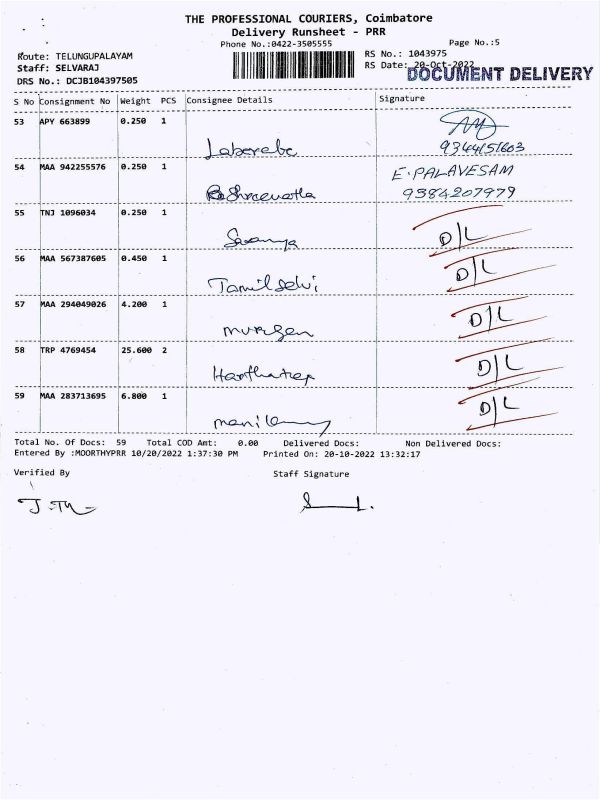 THE PROFESSIONAL COURIERS, Coimbatore
Delivery Runsheet - PRR
Phone No.:0422-3505555
Page No.:5
Route: TELUNGUPALAYAM
RS No.: 1043975
Staff: SELVARAJ
RS Date: 20-Oct-2022
DOCUMENT DELIVERY
DRS No.: DCJB104397505
S No Consignment No Weight PCS Consignee Details Signature
53 APY 663899 0.250 1
9344151603
54 MAA 942255576 0.250 1 E.PALAVESAM
9384207979
55 TNJ 1096034 0.250 1
D/L
56 MAA 567387605 0.450 1 D/L
Tamil Selvi
57 MAA 294049026 4.200 1 D/L
murgen
58 TRP 4769454 25.600 2 D/L
59 MAA 283713695 6.800 1 D/L
Total No. Of Docs: 59 Total COD Amt: 0.00 Delivered Docs: Non Delivered Docs:
Entered By :MOORTHYPRR 10/20/2022 1:37:30 PM Printed On: 20-10-2022 13:32:17
Verified By Staff Signature